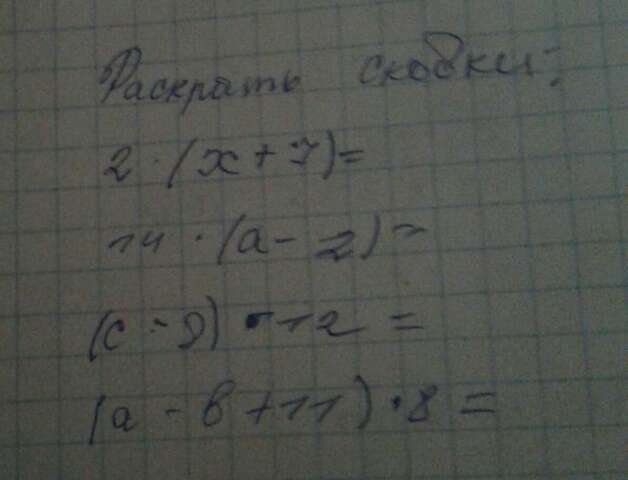 Раскрать скобки:
2 · (x + 7) =
14 · (a - 2) =
(c - 9) · 12 =
(a - b + 11) · 8 =